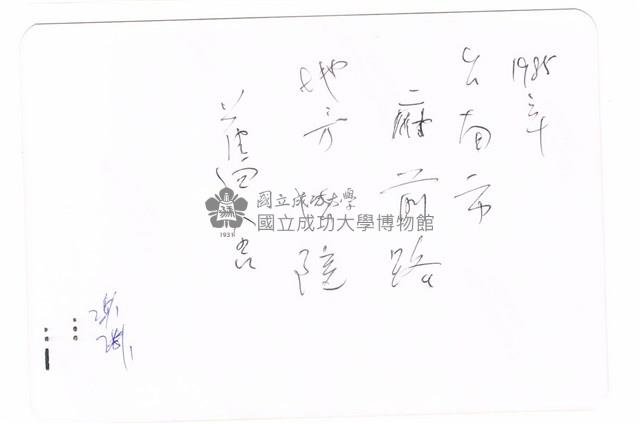 1985年
台南市
府前路
地方法院
國立成功大學
國立成功大學博物館
1931